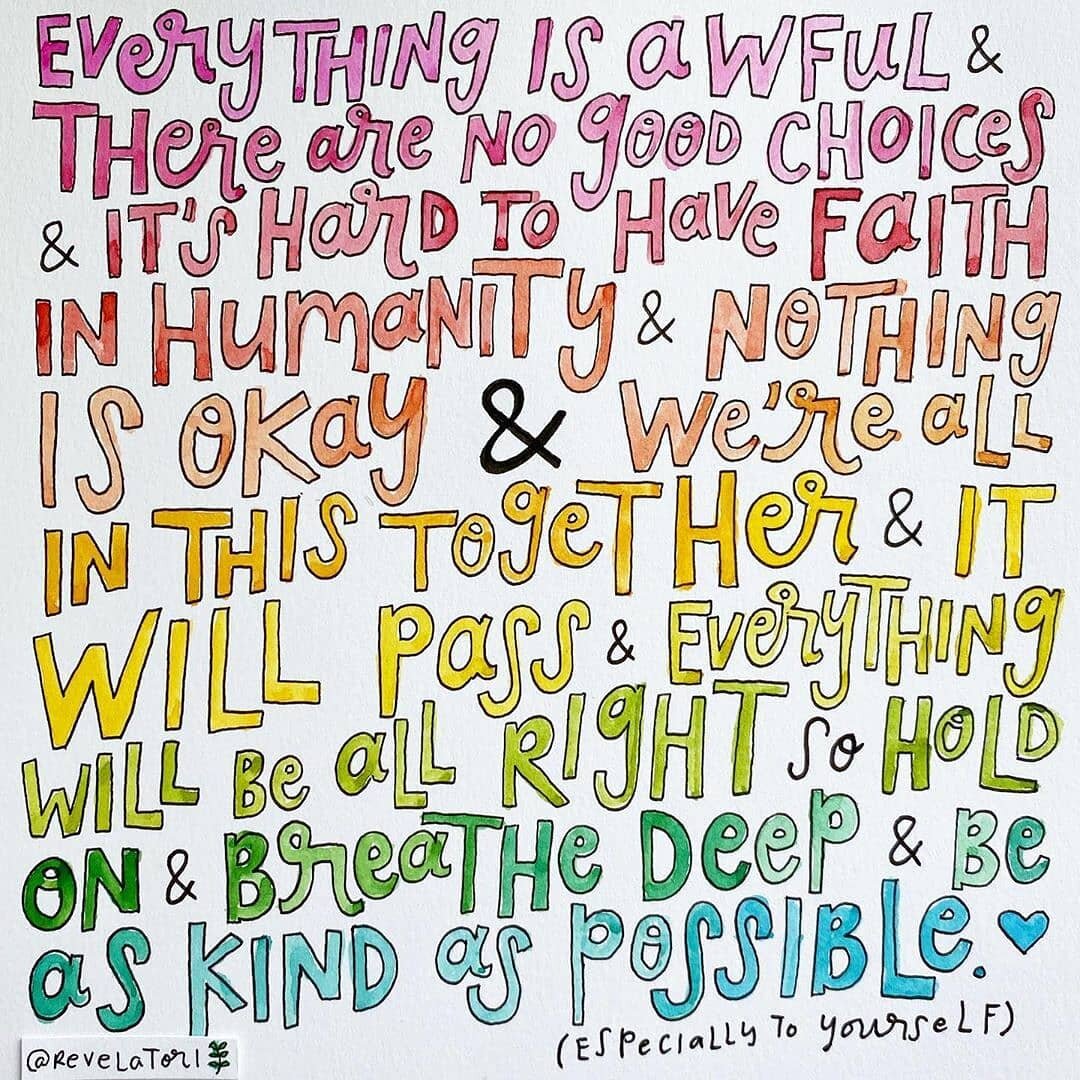 EVERYTHING IS AWFUL &
THERE ARE NO GOOD CHOICES
& IT'S HARD TO HAVE FAITH
IN HUMANITY & NOTHING
IS OKAY & WE'RE ALL
IN THIS TOGETHER & IT
WILL PASS & EVERYTHING
WILL BE ALL RIGHT SO HOLD
ON & BREATHE DEEP & BE
AS KIND AS POSSIBLE.
(ESPECIALLY TO YOURSELF)
@REVELATORI